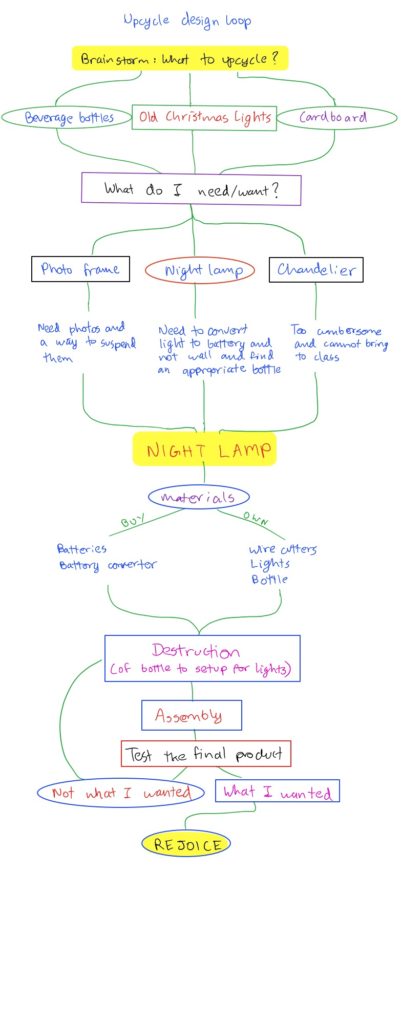 Upcycle design loop
Brainstorm: What to upcycle?
Beverage bottles
Old Christmas Lights
Cardboard
What do I need/want?
Photo frame
Night lamp
Chandelier
Need photos and
a way to suspend
them
Need to convert
light to battery and
not wall and find
an appropriate bottle
Too cumbersome
and cannot bring
to class
NIGHT LAMP
materials
BUY
OWN
Batteries
Battery converter
Wire cutters
Lights
Bottle
Destruction
(of bottle to setup for lights)
Assembly
Test the final product
Not what I wanted
What I wanted
REJOICE